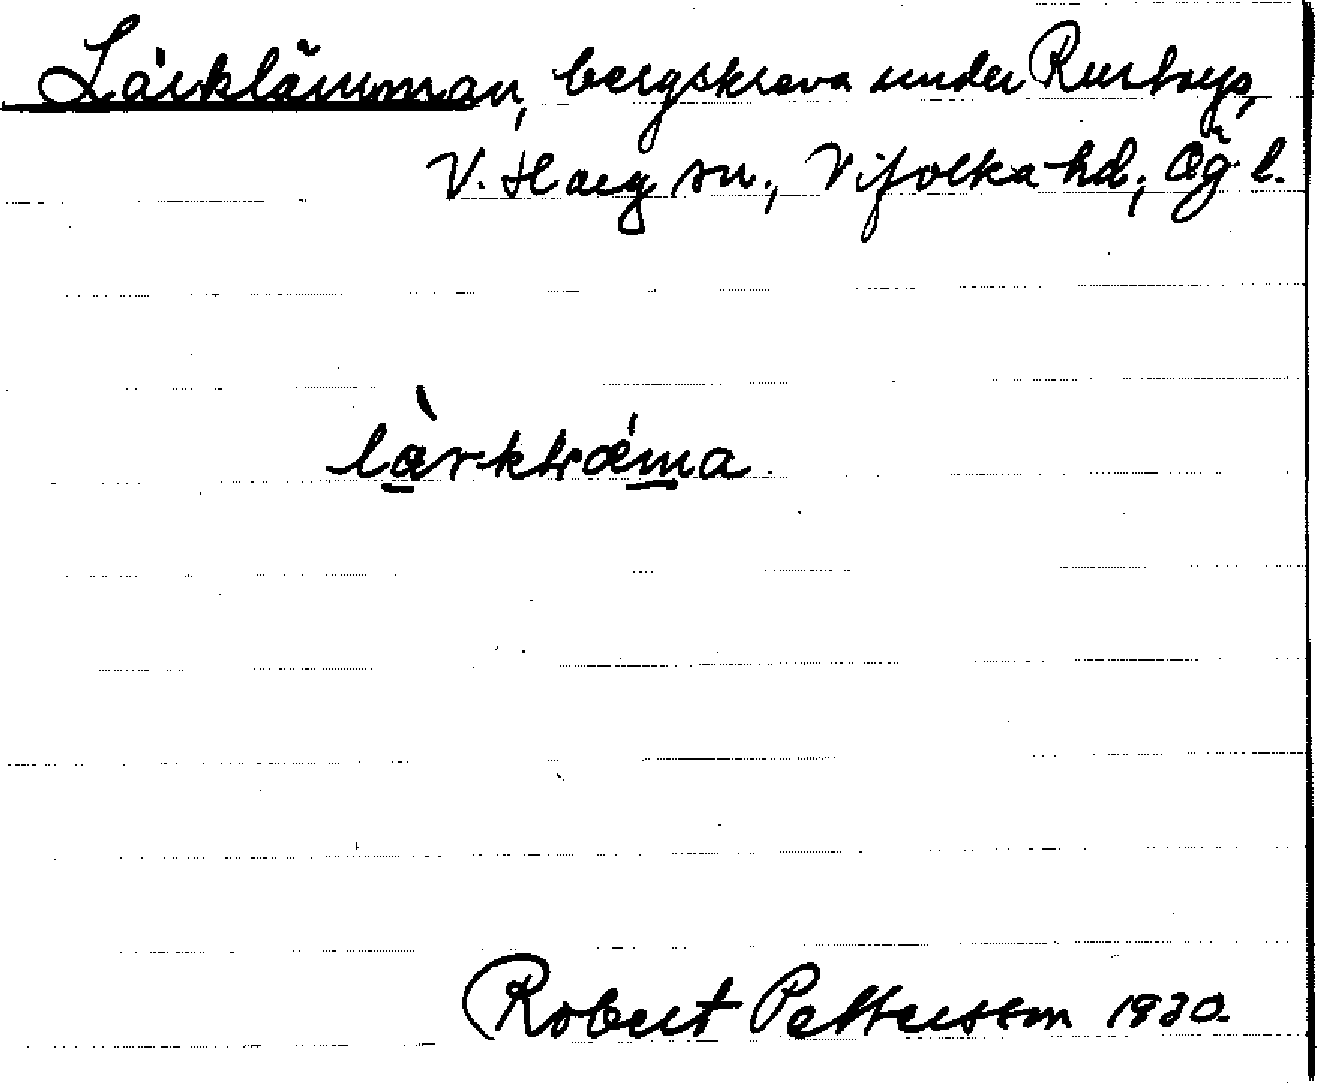 Lärklämman, bergskreva under Rustorp,
V. Harg sn., Vifolka hd., Ög. l.
Robert Pettersson 1930.